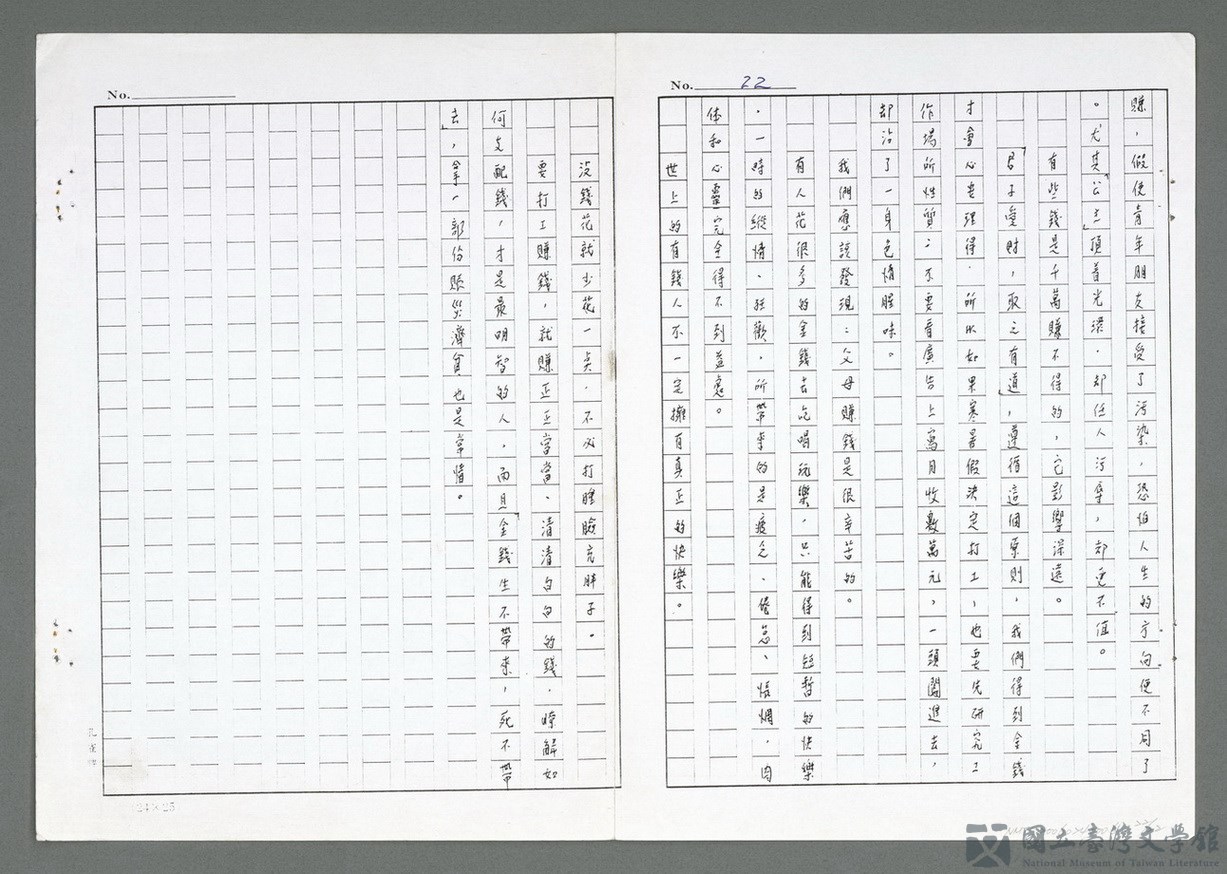 No. 22
賺，假使青年朋友接受了污染，恐怕人生的方向便不同了
。尤其「公主」頂着光環，却任人污辱，却更不值。
有些錢是千萬賺不得的，它影響深遠。
「君子愛財，取之有道」，遵循這個原則，我們得到金錢
才會心安理得，所以如果寒暑假決定打工，也要先研究工
作場所性質；不要看廣告上寫月收數萬元，一頭闖進去，
却沾了一身色情腥味。
我們應該發現：父母賺錢是很辛苦的。
有人花很多的金錢去吃喝玩樂，只能得到短暫的快樂
，一時的縱情、狂歡，所帶來的是疲乏、倦怠、惱，肉
体和心靈完全得不到益處。
世上的有錢人不一定擁有真正的快樂。
No.
沒錢花就少花一点，不必打腫臉充胖子。
要打工賺錢，就賺正正當當、清清白白的錢，瞭解如
何支配錢，才是最明智的人，而且「金錢生不帶來，死不帶
去」，拿一部份賑災濟貧也是常情。
孔雀牌
24×25
國立臺灣文學館
National Museum of Taiwan Literature